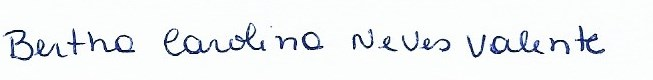 Bertha Carolina Neves Valente